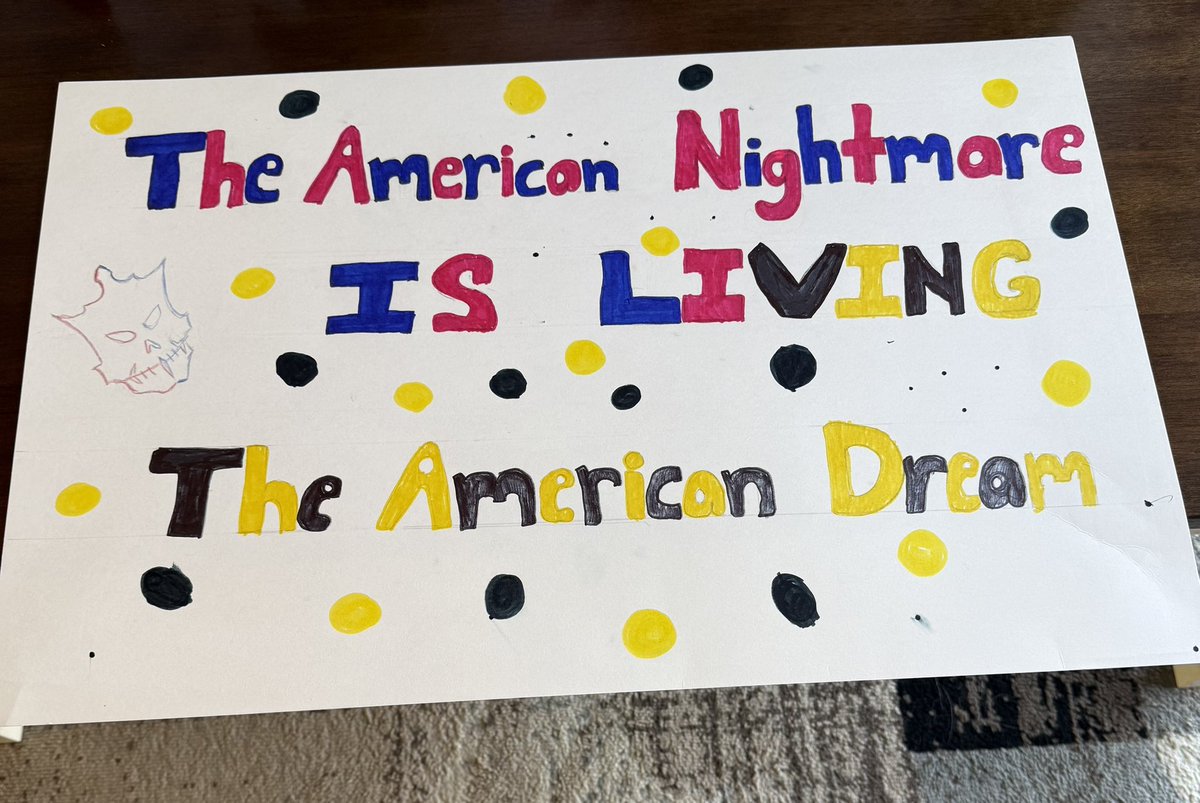 The American Nightmare
IS LIVING
The American Dream